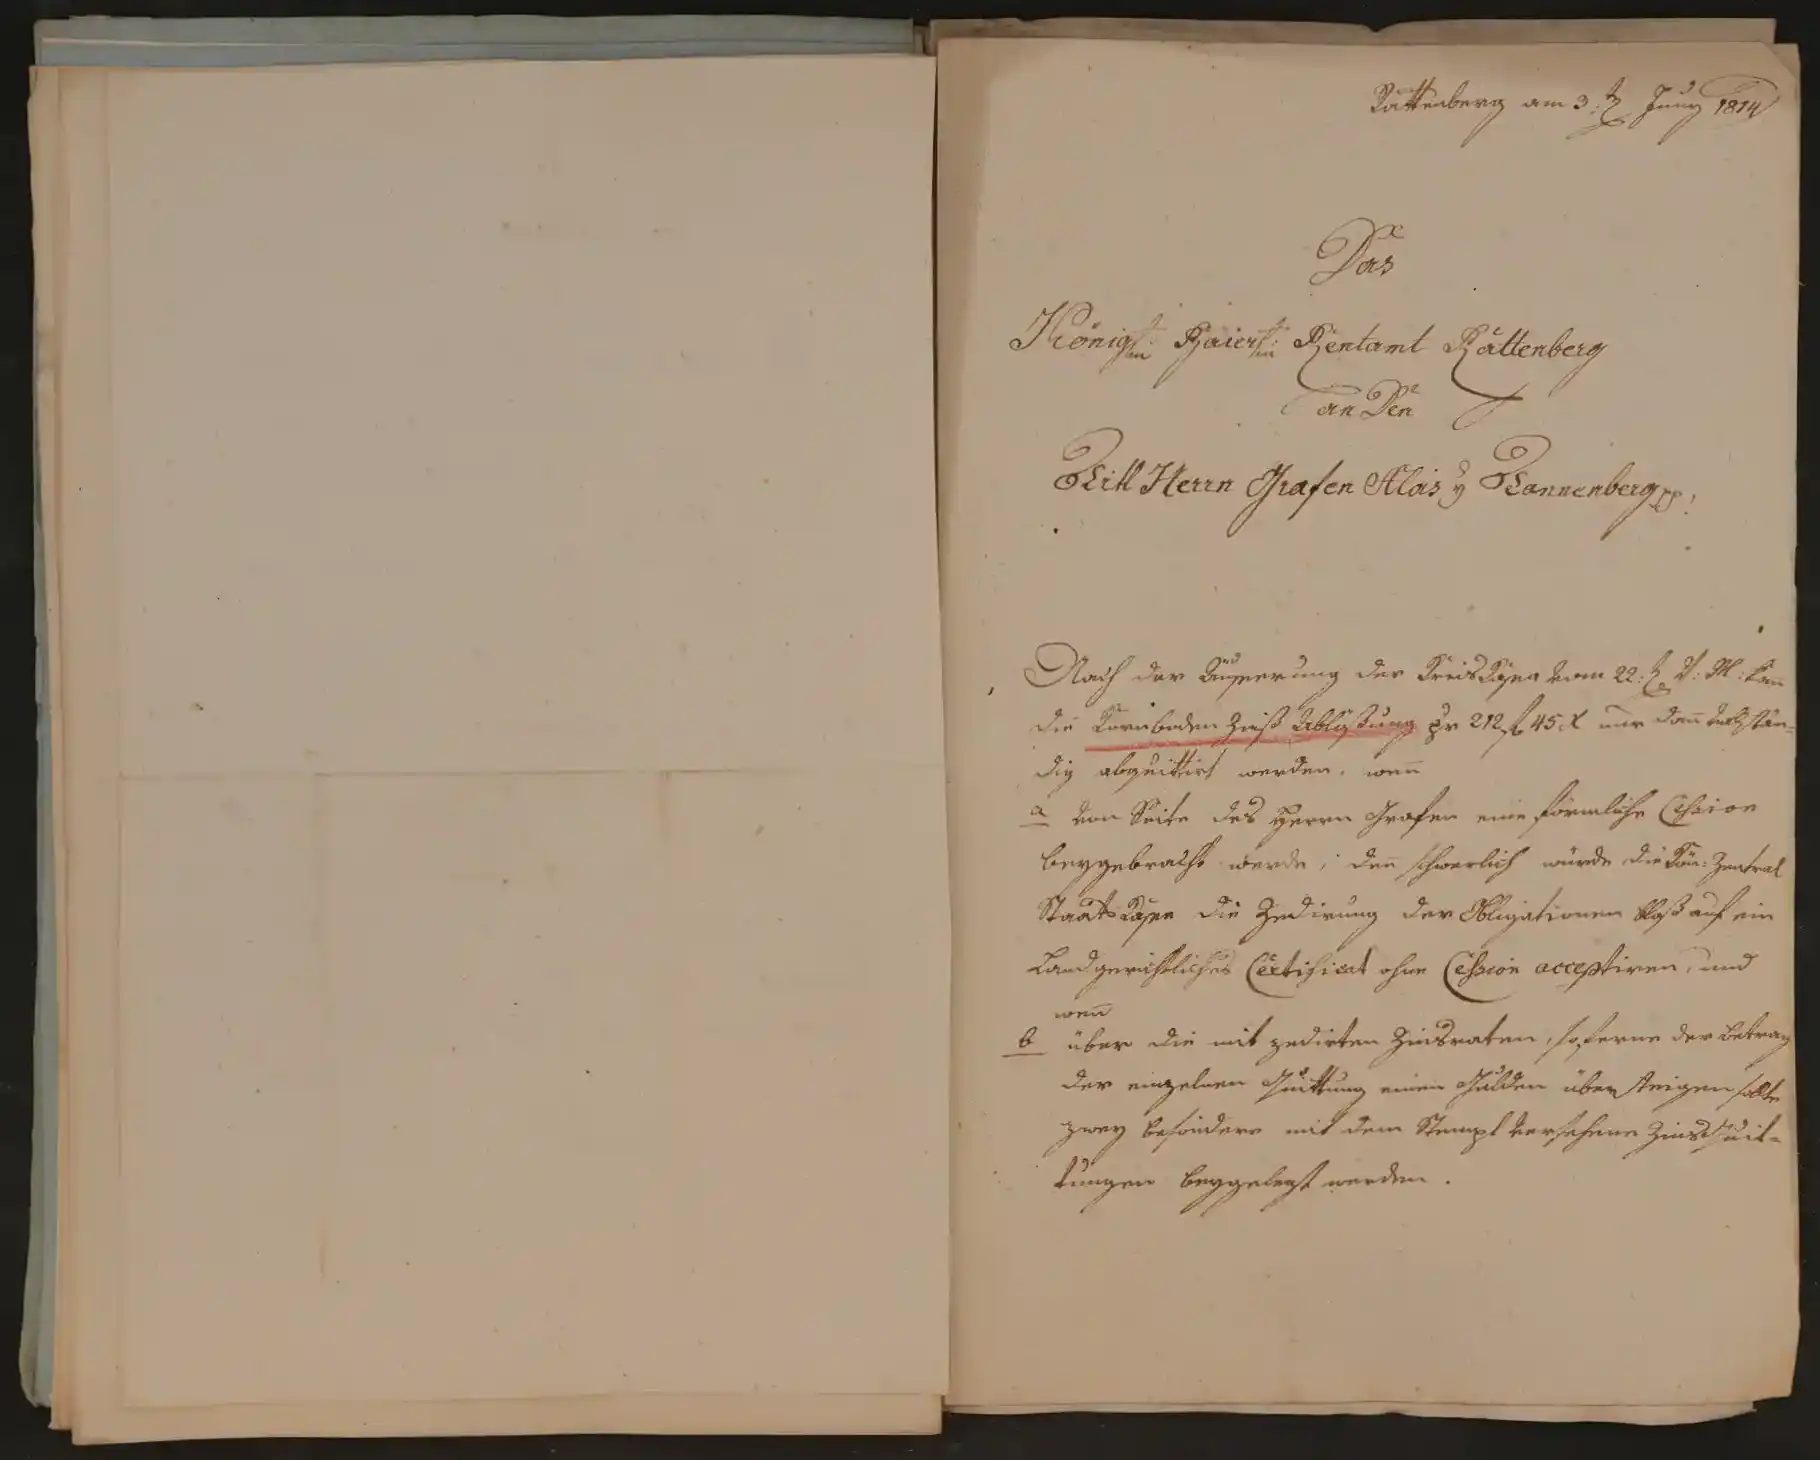 Rattenberg am 3. Juny 1814
Das
Königl: Baier: Rentamt Rattenberg
an Den
Titl Herrn Grafen Alois v Tannenberg pp:
Nach der Äusserung der Kreiskassa vom 22. d: M: kañ
die Kornboden Zinß Ablösung pr 212 f 45 x nur dañ vollstän-
dig abquittirt werden, weñ
a von Seite des Herrn Grafen eine förmliche Cession
beygebracht werde, deñ schwerlich würde die Kön: Zentral
Staats Kassa die Zedirung der Obligationen bloß auf ein
Landgerichtliches Certificat ohne Cession acceptiren, und
weñ
b über die mit zedirten Zinsraten, soferne der Betrag
der einzelnen Quittung einen Gulden übersteigen sollte
zwey besondere mit dem Stempl versehene Zinsquit-
tungen beygelegt werden.